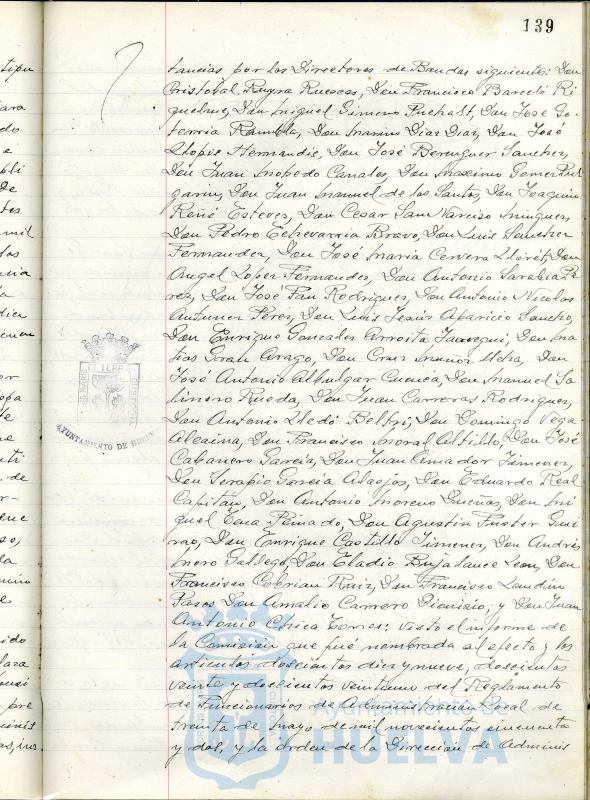 139
tancias por los Directores de Bandas siguientes: Don
Cristobal Ruyra Ruescas, Don Francisco Barceló Ri-
quelme, Don Miguel Gimeno Puchalt, Don José Go-
terria Rambla, Don Marino Diaz Diaz, Don José
Llopis Hernandis, Don José Berenguer Sanchez,
Don Juan Mopedo Canales, Don Maximo Gomez Pul-
garin, Don Juan Manuel de los Santos, Don Joaquin
René Esteves, Don Cesar Sam Narciso Minguez,
Don Pedro Echevarria Bravo, Don Luis Sanchez
Fernandez, Don José Maria Cervera Lloret, Don
Angel Lopez Fernandez, Don Antonio Sarabia Pe-
rez, Don José Pau Rodriguez, Don Antonio Nicolas
Antunez Perez, Don Luis Jesus Aparicio Sancho,
Don Enrique Gonzalez Arroita Jauregui, Don Ma-
tias Grau Arago, Don Cruz Muñoz Mora, Don
José Antonio Albulgar Cuenca, Don Manuel Sa-
linero Rueda, Don Juan Carreras Rodriguez,
Don Antonio Lledó Beltri, Don Domingo Vega
Alcaina, Don Francisco Moral Altillo, Don José
Cabanero Garcia, Don Juan Amador Jimenez,
Don Serapio Garcia Alaejos, Don Eduardo Real
Capitán, Don Antonio Moreno Dueñas, Don Mi-
guel Tena Peinado, Don Agustin Fuster Gui-
rao, Don Enrique Castillo Jimenez, Don Andrés
Moro Gallego, Don Eladio Bujalance Leon, Don
Francisco Cebrian Ruiz, Don Francisco Landino
Pasos, Don Amalio Carrero Dionisio, y Don Juan
Antonio Chica Torres: visto el informe de
la Comision que fué nombrada al efecto y los
articulos doscientos diez y nueve, doscientos
veinte y doscientos veintiuno del Reglamento
de Funcionarios de Administracion Local de
treinta de mayo de mil novecientos cincuenta
y dos, y la orden de la Direccion de Adminis
AYUNTAMIENTO DE HUELVA
Ayuntamiento de
HUELVA